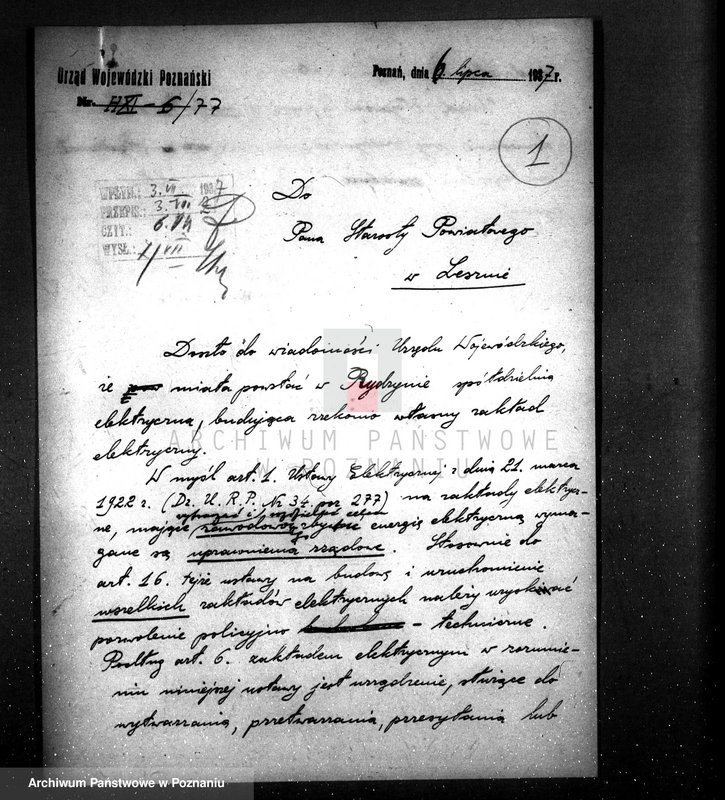 Urząd Wojewódzki Poznański
Nr. HXI-6/77
Poznań, dnia 6 lipca 1937 r.
1
WPŁYN.: 3.VII 1937
PRZEPIS.: 3.VII
CZYT.: 6.VII
WYSŁ.: VII
Do
Pana Starosty Powiatowego
w Lesznie
Doszło do wiadomości Urzędu Wojewódzkiego,
że miała powstać w Rydzynie spółdzielnia
elektryczna, budująca rzekomo własny zakład
elektryczny.
W myśl art. 1. Ustawy Elektrycznej z dnia 21. marca
1922 r. (Dz. U. R. P. Nr. 34. poz. 277) na zakłady elektrycz-
wytwarzać i celem
ne, mające zawodowego zbycia energię elektryczną wyma-
gane są uprawnienia rządowe. Stosownie do
art. 16. tejże ustawy na budowę i uruchomienie
wszelkich zakładów elektrycznych należy uzyskać
pozwolenie policyjno - techniczne.
Podług art. 6. zakładem elektrycznym w rozumie-
niu niniejszej ustawy jest urządzenie, służące do
wytwarzania, przetwarzania, przesyłania lub
ARCHIWUM PAŃSTWOWE
W POZNANIU
Archiwum Państwowe w Poznaniu